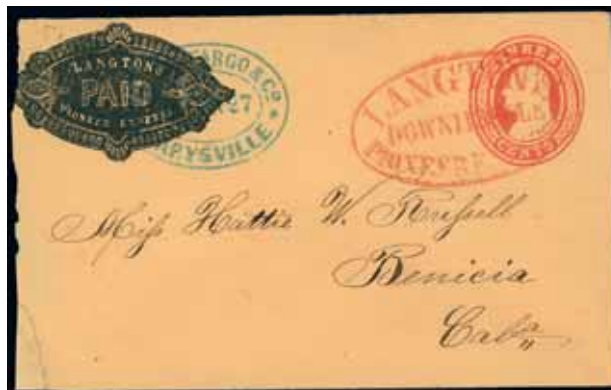 LANGTON'S
PAID
PIONEER EXPRESS
ARGO & Co
27
RYSVILLE
LANGT
DOWNIE
PIONE
THREE
CENTS
Miss Hattie W. Russell
Benicia
Cala